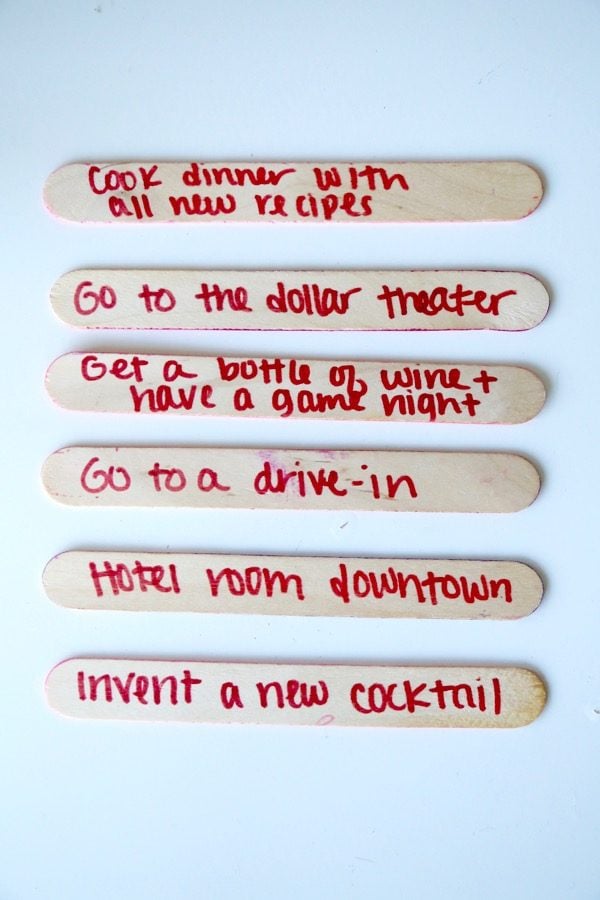 Cook dinner with
all new recipes
Go to the dollar theater
Get a bottle of wine +
have a game night
Go to a drive-in
Hotel room downtown
Invent a new cocktail